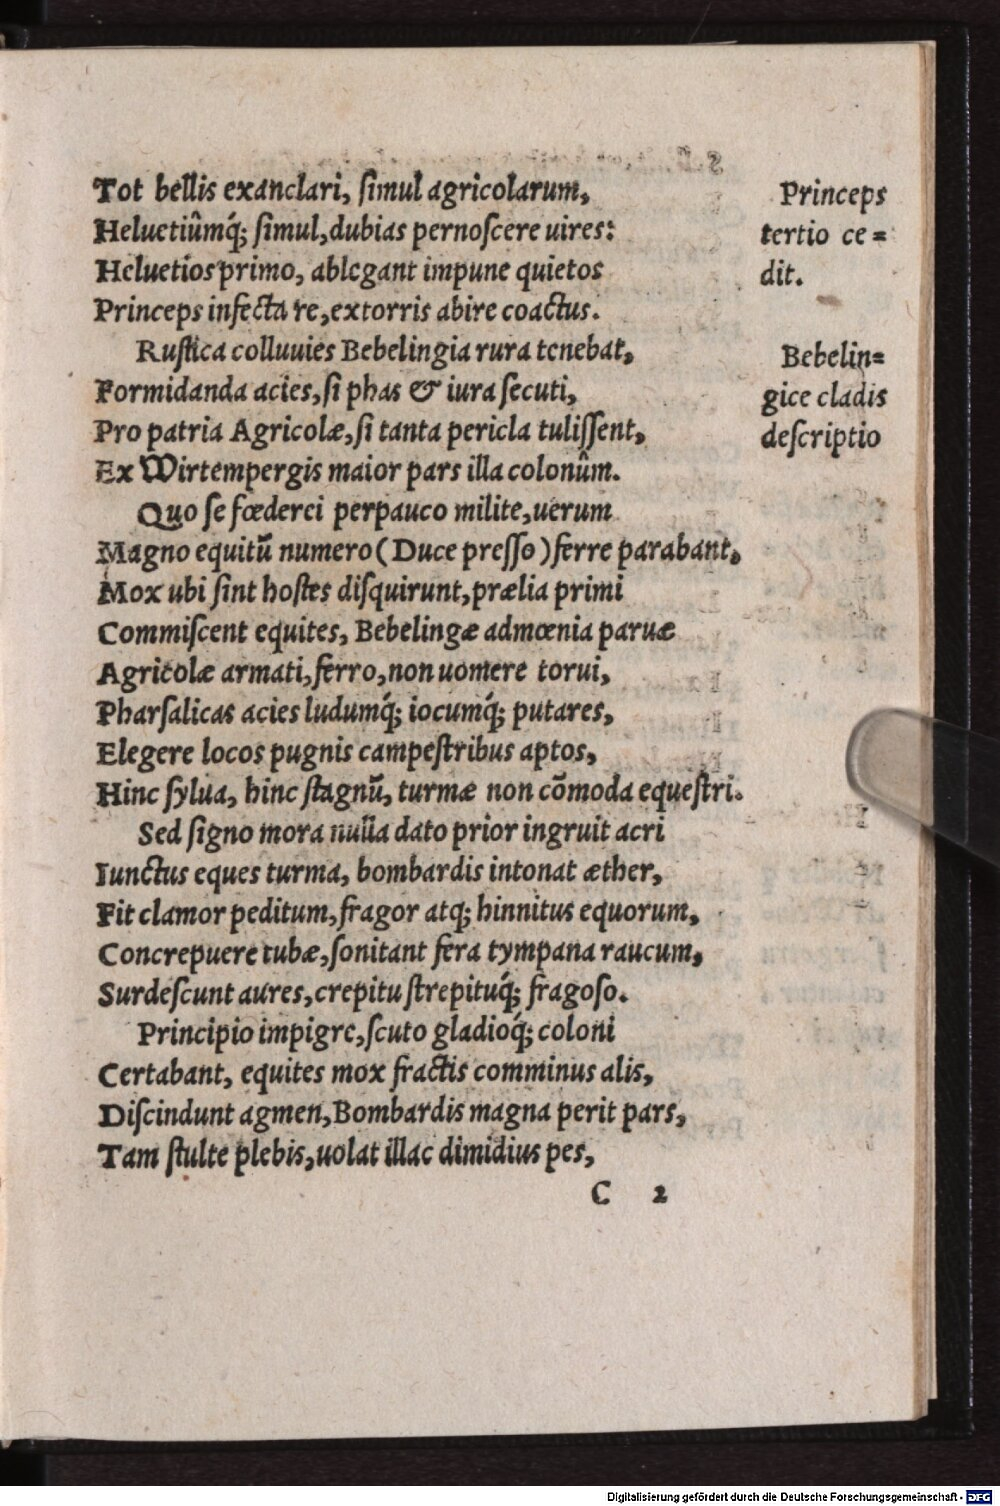 Tot bellis exanclari, ſimul agricolarum,
Heluetiûmq́; ſimul, dubias pernoſcere uires:
Heluetios primo, ablegant impune quietos
Princeps infecta re, extorris abire coactus.
Ruſtica colluuies Bebelingia rura tenebat,
Formidanda acies, ſi phas & iura ſecuti,
Pro patria Agricolæ, ſi tanta pericla tuliſſent,
Ex Wirtempergis maior pars illa colonûm.
Quo ſe fœderei perpauco milite, uerum
Magno equitū numero (Duce preſſo) ferre parabant,
Mox ubi ſint hoſtes diſquirunt, prælia primi
Commiſcent equites, Bebelingæ admœnia paruæ
Agricolæ armati, ferro, non uomere torui,
Pharſalicas acies ludumq́; iocumq́; putares,
Elegere locos pugnis campeſtribus aptos,
Hinc ſylua, hinc ſtagnū, turmæ non cōmoda equeſtri.
Sed ſigno mora nulla dato prior ingruit acri
Iunctus eques turma, bombardis intonat æther,
Fit clamor peditum, fragor atq; hinnitus equorum,
Concrepuere tubæ, ſonitant fera tympana raucum,
Surdeſcunt aures, crepitu ſtrepituq́; fragoſo.
Principio impigre, ſcuto gladioq́; coloni
Certabant, equites mox fractis comminus alis,
Diſcindunt agmen, Bombardis magna perit pars,
Tam ſtulte plebis, uolat illac dimidius pes,
C 2
Princeps
tertio ce=
dit.
Bebelin=
gice cladis
deſcriptio
Digitalisierung gefördert durch die Deutsche Forschungsgemeinschaft - DFG